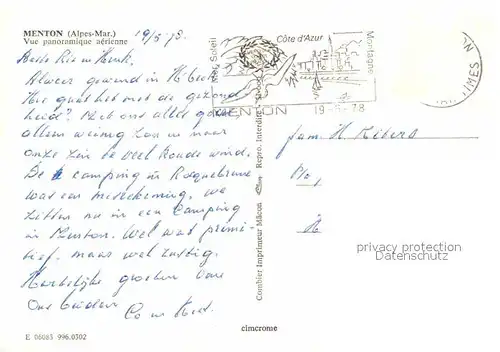 MENTON (Alpes-Mar.)
Vue panoramique aérienne
19/5 '78.
Beste Ria en Henk.
Alweer gewend in H. Beek?
Hoe gaat het met de gezond
heid? Met ons alles goed
alleen weinig zon en naar
onze zin te veel koude wind.
De camping in Roquebrune
was een misrekening, we
zitten nu in een Camping
in Menton. Wel wat primi-
tief, maar wel rustig.
Hartelijke groeten van
Ons beiden
Co en
E 06083 996.0302
Combier Imprimeur Mâcon
Repro. Interdite
cimcrome
Soleil
Côte d'Azur
Montagne
MENTON
19-5-78
fam. H.
privacy protection
Datenschutz